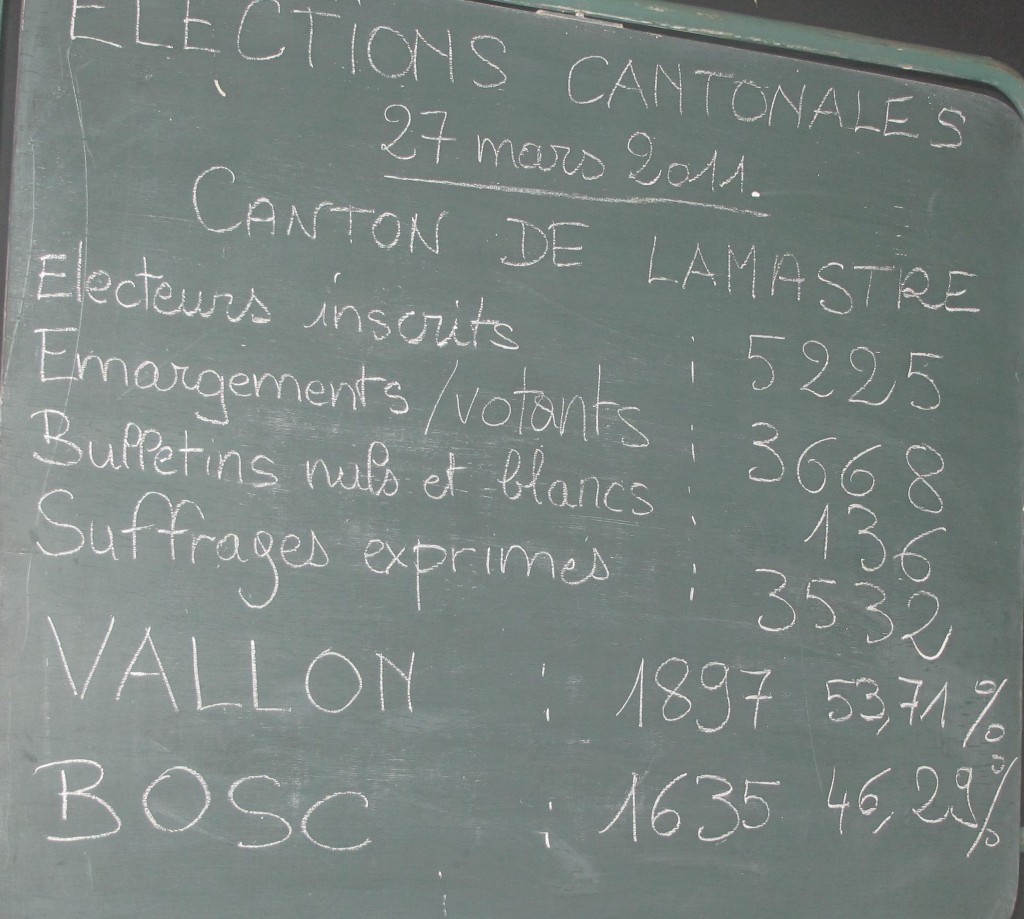 ELECTIONS CANTONALES
27 mars 2011.
CANTON DE LAMASTRE
Electeurs inscrits : 5225
Emargements/votants : 3668
Bulletins nuls et blancs : 136
Suffrages exprimés : 3532
VALLON : 1897 53,71%
BOSC : 1635 46,29%